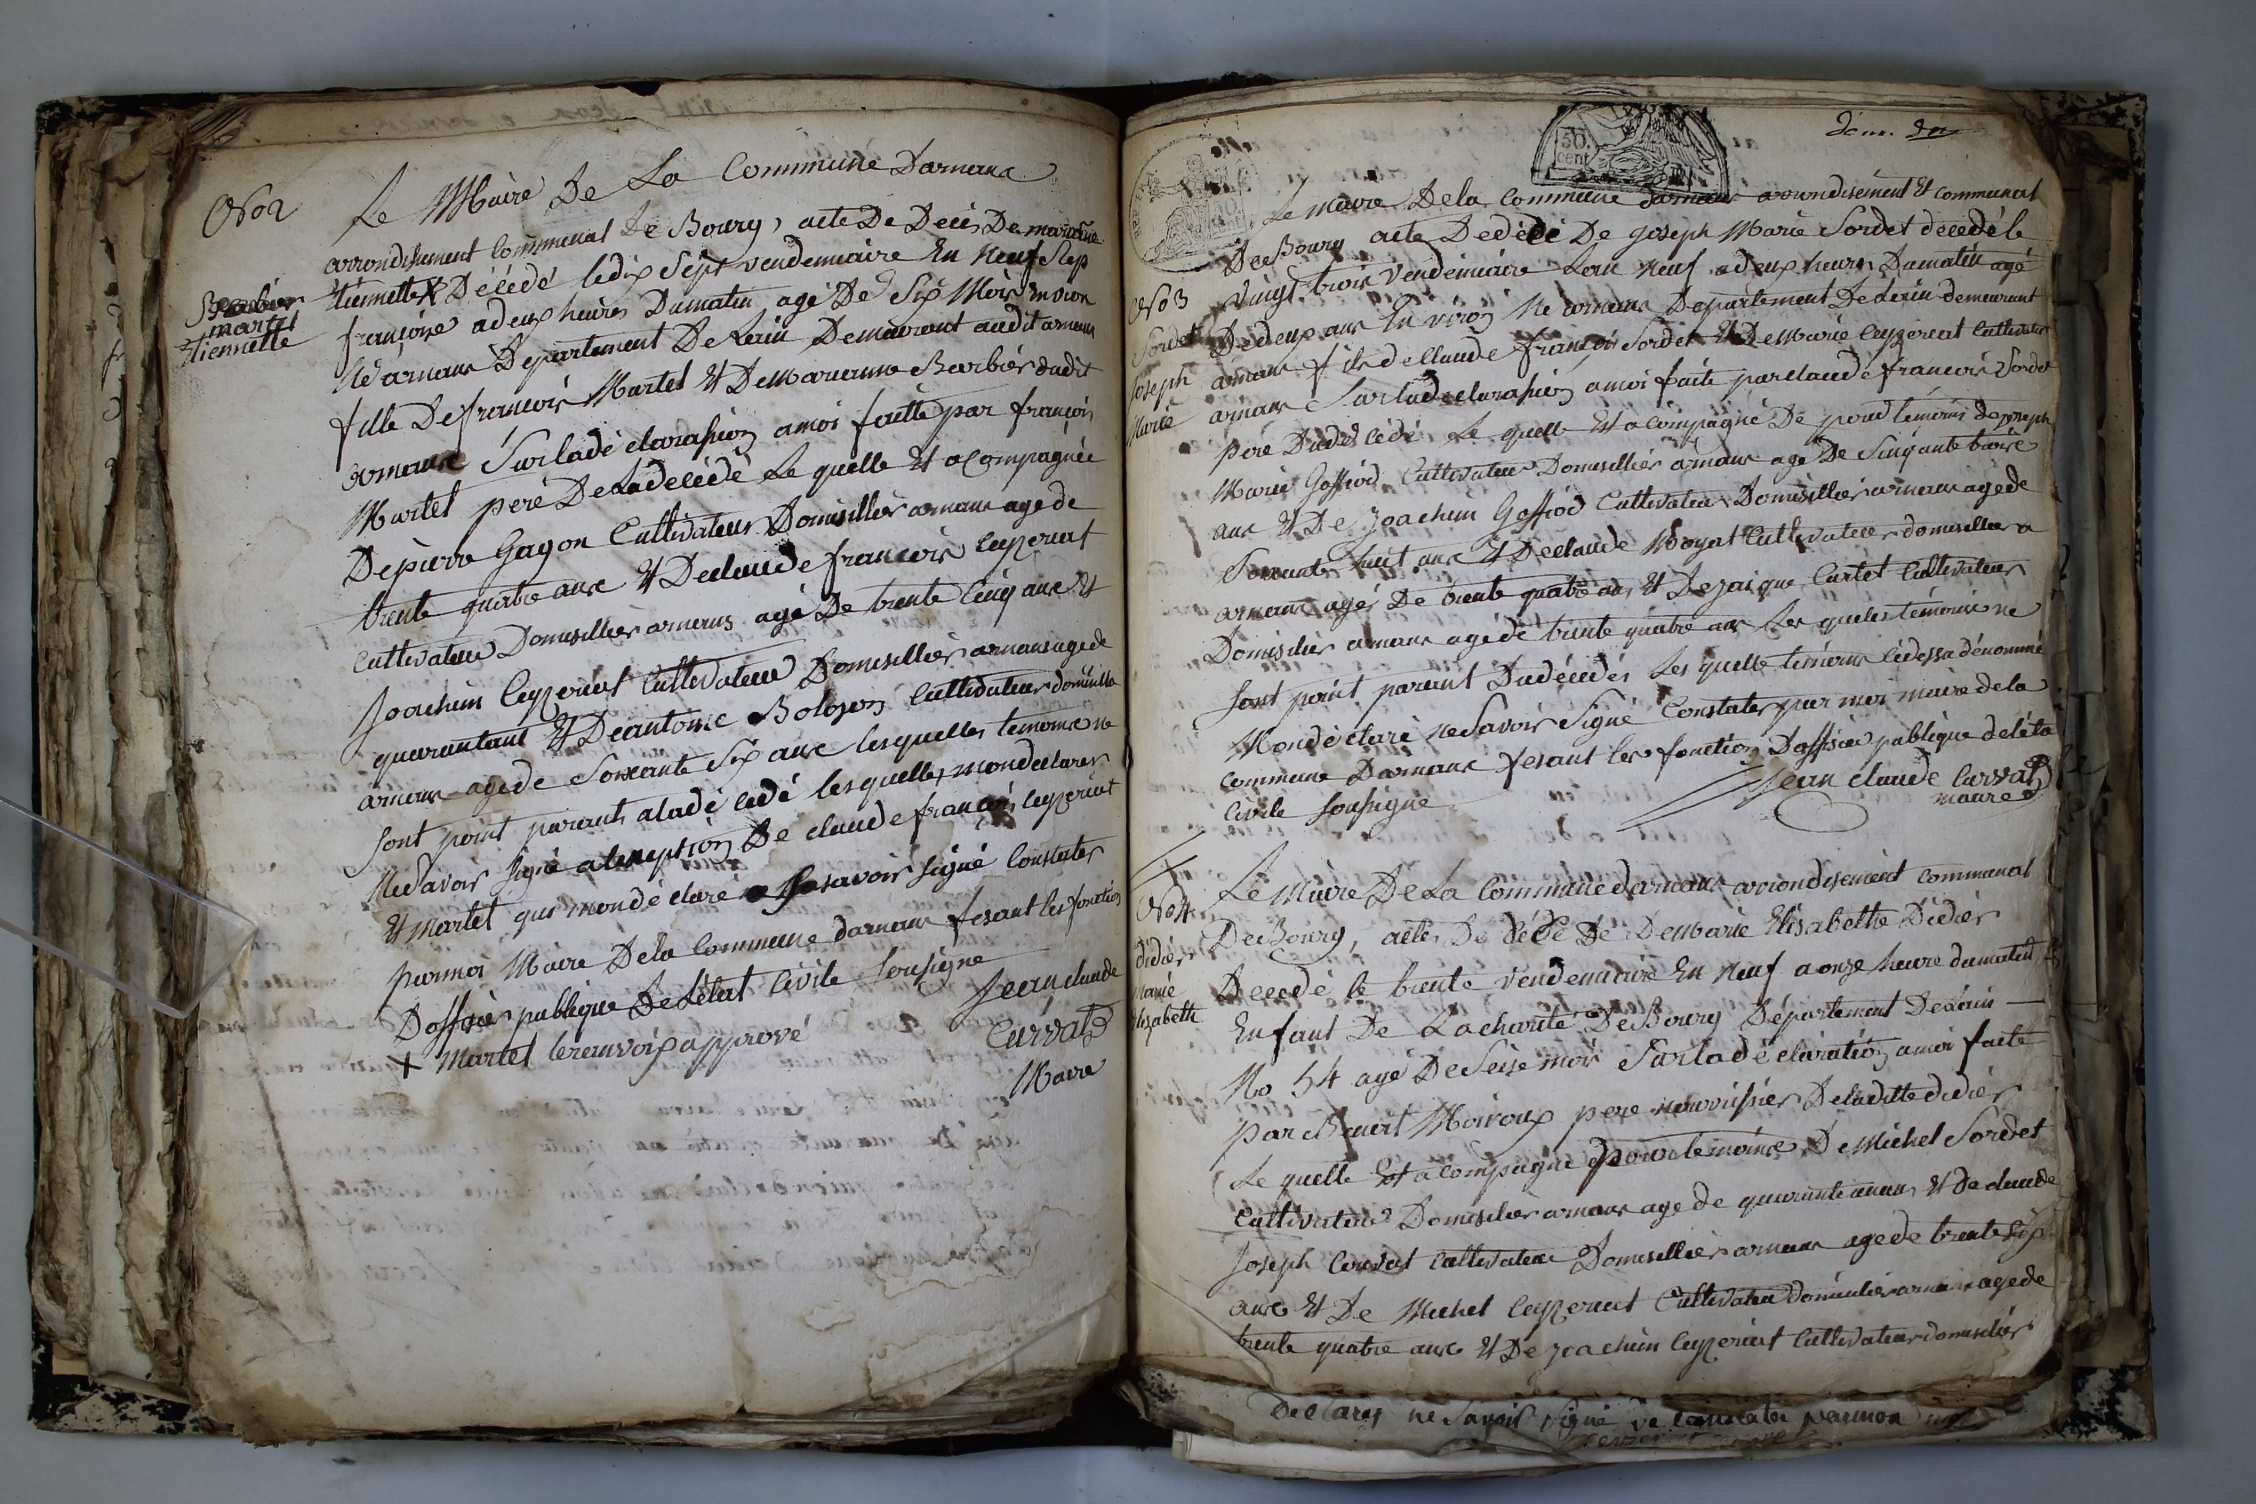 No 2
Martel
tiennette
Le Maire De La Commune Darnans
arrondisement Communal De Bourg, acte De Décés De
tiennette X Décédé le dix Sept vendemiaire En neuf
françoise a deux heures Dumatin, agé De Six Mois Environ
Né arnans Departement De Lain Demeurant audit arnans
fille De françois Martel Et De Marianne Barbier dudit
arnans Surladé clarasion amoi faitte par françois
Martel peré De Ladécédé Le quelle Et acompagnée
De pierre Gagon Cultivateur Domisillier arnans age de
trente quatre ans Et De claude françois Ceyzeriat
Cultivateur Domisillier arnans agé De trente Cinq ans Et
Joachim Ceyzeriat Cultivateur Domisillier arnans age de
quarantant Et De antoine Bolozon Cultivateur domisillie
arnans age de Soixante Six ans lesquelles temoins ne
Sont point parents aladé cédé lesquelles mondeclarer
Ne Savoir Signé alexeption De claude françois Ceyzeriat
Et Martel qui mondé claré Savoir Signé Constater
parmoi Maire De la Commune darnans fesant les fonction
Doffisier publique De Létat Civile Sousigne
Jean claude
Curvat
Maire
+ Martel lerenvoix apprové
50.
cent
No 3
Sordet
Joseph
Marie
Le maire Dela Commune darnans arrondisement Et communal
De Bourg acte De dédé De Joseph Marie Sordet decedé le
vingt trois vendemiaire Lan neuf a deux heures Dumatin agé
De deux ans En viron Né arnans Departement De Lain demeurant
arnans fils de Claude françois Sordet Et De Marie Ceyzeriat Cultivateur
arnans Surladeclarasion amoi faite parclaude francois Sordet
peré Dudécédé Le quelle Est acompagné De pour temoins de joseph
Marie Goffiod Cultivateur Domisillier arnans age De Sinquante troise
ans Et De Joachim Goffiod Cultivateur Domisillier arnans age de
Soixante huit ans Et De claude Moyat Cultivateur domisillier a
arnans agés De trente quatre ans Et De jaique Curtet Cultivateur
Domisilier arnans agé de trente quatre ans Les queles temoins ne
Sont point parent Dudécédés Les quelle temoins cidessa dénommé
Mondéclaré neSavoir Signé Constater par moi maire dela
commune Darnans fesant les fonction Doffisier publique deléta
Civile Sousigné
Jean claude Curvat
maire
No 4
didier
marie
Elisabette
Le Maire De La Commune darnans arrondisement communal
De Bourg, acte De dédé De De Marie Elisabette Didier
Decedé le trente vendemiaire En Neuf a onze heure dumatin
Enfant De Lacharité De Bourg Département De Lain
No 54 agé De Seise mois Surladéclaration amoi faite
par Benoit Moiroux pere nourrissier Deladitte didier
Le quelle Est acompagné pourtemoins De Michel Sordet
Cultivateur Domisilier arnans age de quarante ans Et De claude
Joseph Convat Cultivateur Domisillier arnans age de trente six
ans Et De Michel Ceyzeriat Cultivateur domisilier arnans age de
trente quatre ans Et De Joachim Ceyzeriat Cultivateur domisilier
Declarer ne Savoir Signé constater parmoi